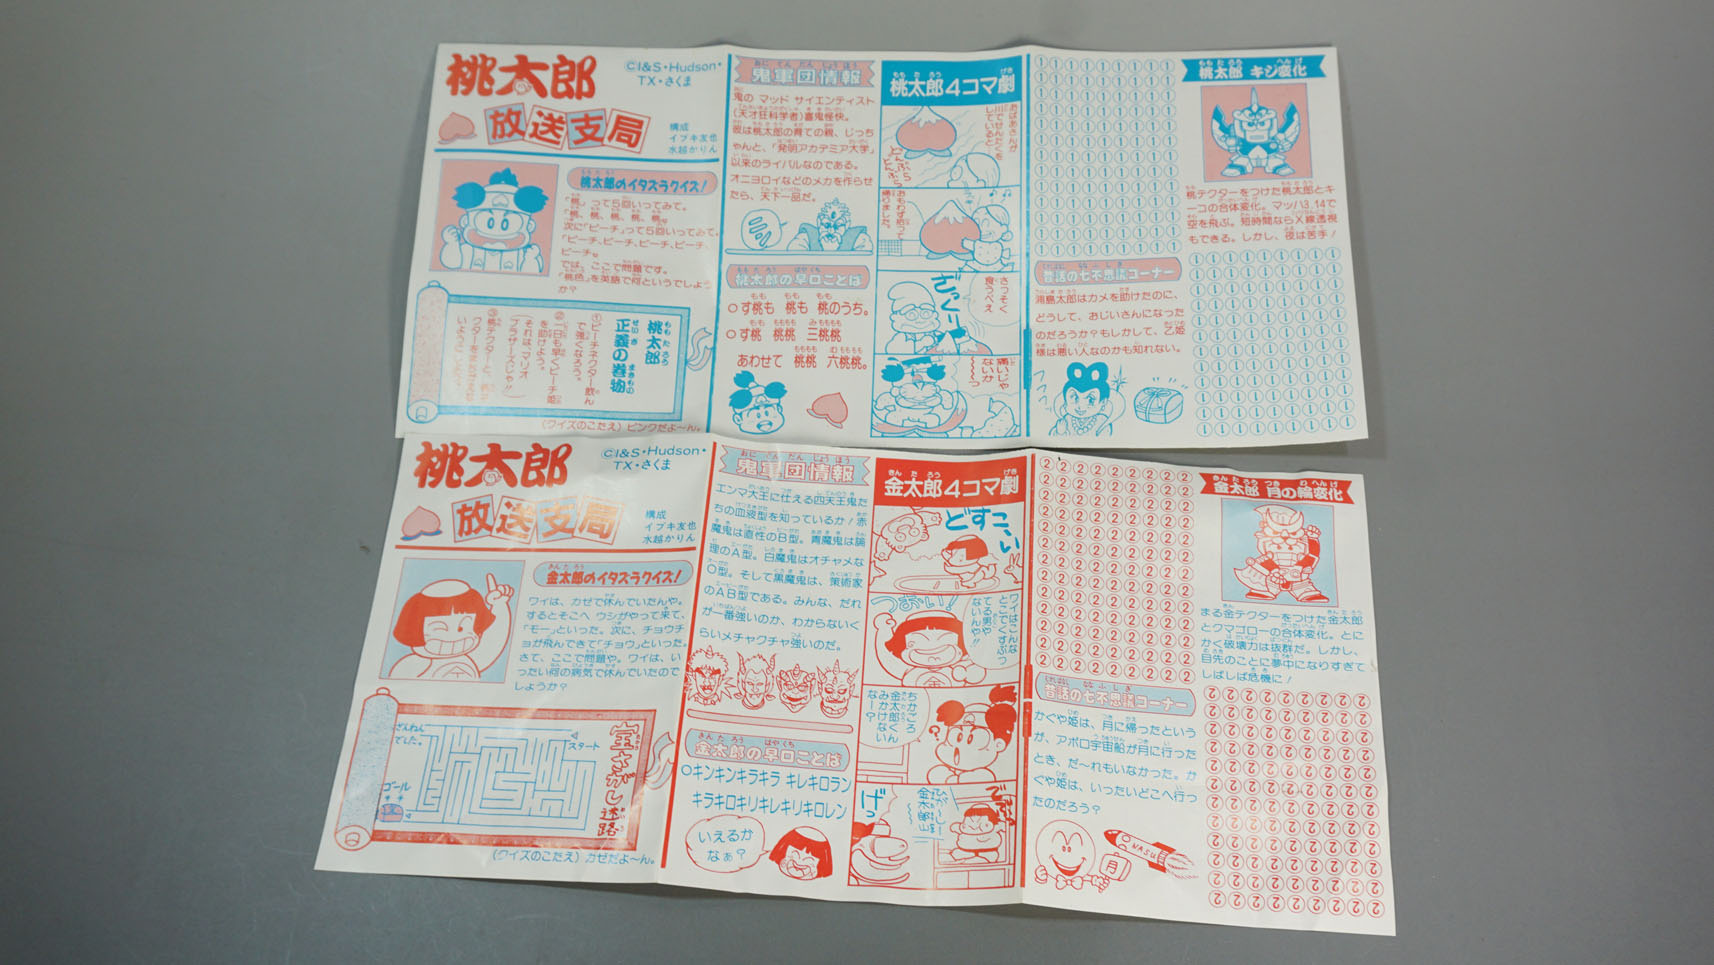 桃太郎
放送支局
©I&S・Hudson・
TX・さくま
構成
イブキ友也
水越かりん
桃太郎のイタズラクイズ!
「桃」って5回いってみて。
「桃、桃、桃、桃、桃。
次に「ピーチ」って5回いってみて。
「ピーチ、ピーチ、ピーチ、ピーチ、
ピーチ。
では、ここで問題です。
「桃色」を英語で何というでしょう
か?
桃太郎
正義の巻物
①ピーチネクター飲ん
で強くなろう。
②一日も早くピーチ姫
を助けよう。
(それは、マリオ
ブラザーズじゃ!!
(クイズのこたえ)ピンクだよ〜ん。
鬼軍団情報
鬼の マッド サイエンティスト
(天才狂科学者)喜鬼怪快。
彼は桃太郎の育ての親、じっち
ゃんと、「発明アカデミア大学」
以来のライバルなのである。
オニヨロイなどのメカを作らせ
たら、天下一品だ。
桃太郎の早口ことば
○す桃も 桃も 桃のうち。
○す桃 桃桃 三桃桃
あわせて 桃桃 六桃桃。
桃太郎4コマ劇
おばあさんが
川でせんたくを
していると
どんぶら
どんぶら
おもわず拾って
帰りました。
さっそく
食うべえ
ざっくり
痛いじゃ
ないか
〜〜〜っ
桃太郎 キジ変化
桃テクターをつけた桃太郎とキ
ーコの合体変化。マッハ3.14で
空を飛ぶ。短時間ならX線透視
もできる。しかし、夜は苦手!
昔話の七不思議コーナー
浦島太郎はカメを助けたのに、
どうして、おじいさんになった
のだろうか?もしかして、乙姫
様は悪い人なのかも知れない。
桃太郎
放送支局
©I&S・Hudson・
TX・さくま
構成
イブキ友也
水越かりん
金太郎のイタズラクイズ!
ワイは、カゼで休んでいたんや。
するとそこへ ウシがやって来て、
「モー」といった。次に、チョウチ
ョが飛んできて「チョウ」といった。
さて、ここで問題や。ワイは、い
ったい何の病気で休んでいたので
しょうか?
宝さがし迷路
スタート
ざんねん
でした。
ゴール
(クイズのこたえ)カゼだよ〜ん。
鬼軍団情報
エンマ大王に仕える四天王鬼た
ちの血液型を知っているか!赤
魔鬼は直性のB型。青魔鬼は論
理のA型。白魔鬼はオチャメな
O型。そして黒魔鬼は、策術家
のAB型である。みんな、だれ
が一番強いのか、わからないく
らいメチャクチャ強いのだ。
金太郎の早口ことば
○キンキンキラキラ キレキロラン
キラキロキリキレキリキロレン
いえるか
なぁ?
金太郎4コマ劇
どすこい
つお〜い!
ワイはこんな
とこでくすぶっ
てる男や
ないんや!!
ちかごろ
金太郎
みかけなく
なぁー?
げっ
金太郎 月の輪変化
まる金テクターをつけた金太郎
とクマゴローの合体変化。とに
かく破壊力は抜群だ。しかし、
目先のことに夢中になりすぎて
しばしば危機に!
昔話の七不思議コーナー
かぐや姫は、月に帰ったという
が、アポロ宇宙船が月に行った
とき、だ〜れもいなかった。か
ぐや姫は、いったいどこへ行っ
たのだろう?
月
NASU